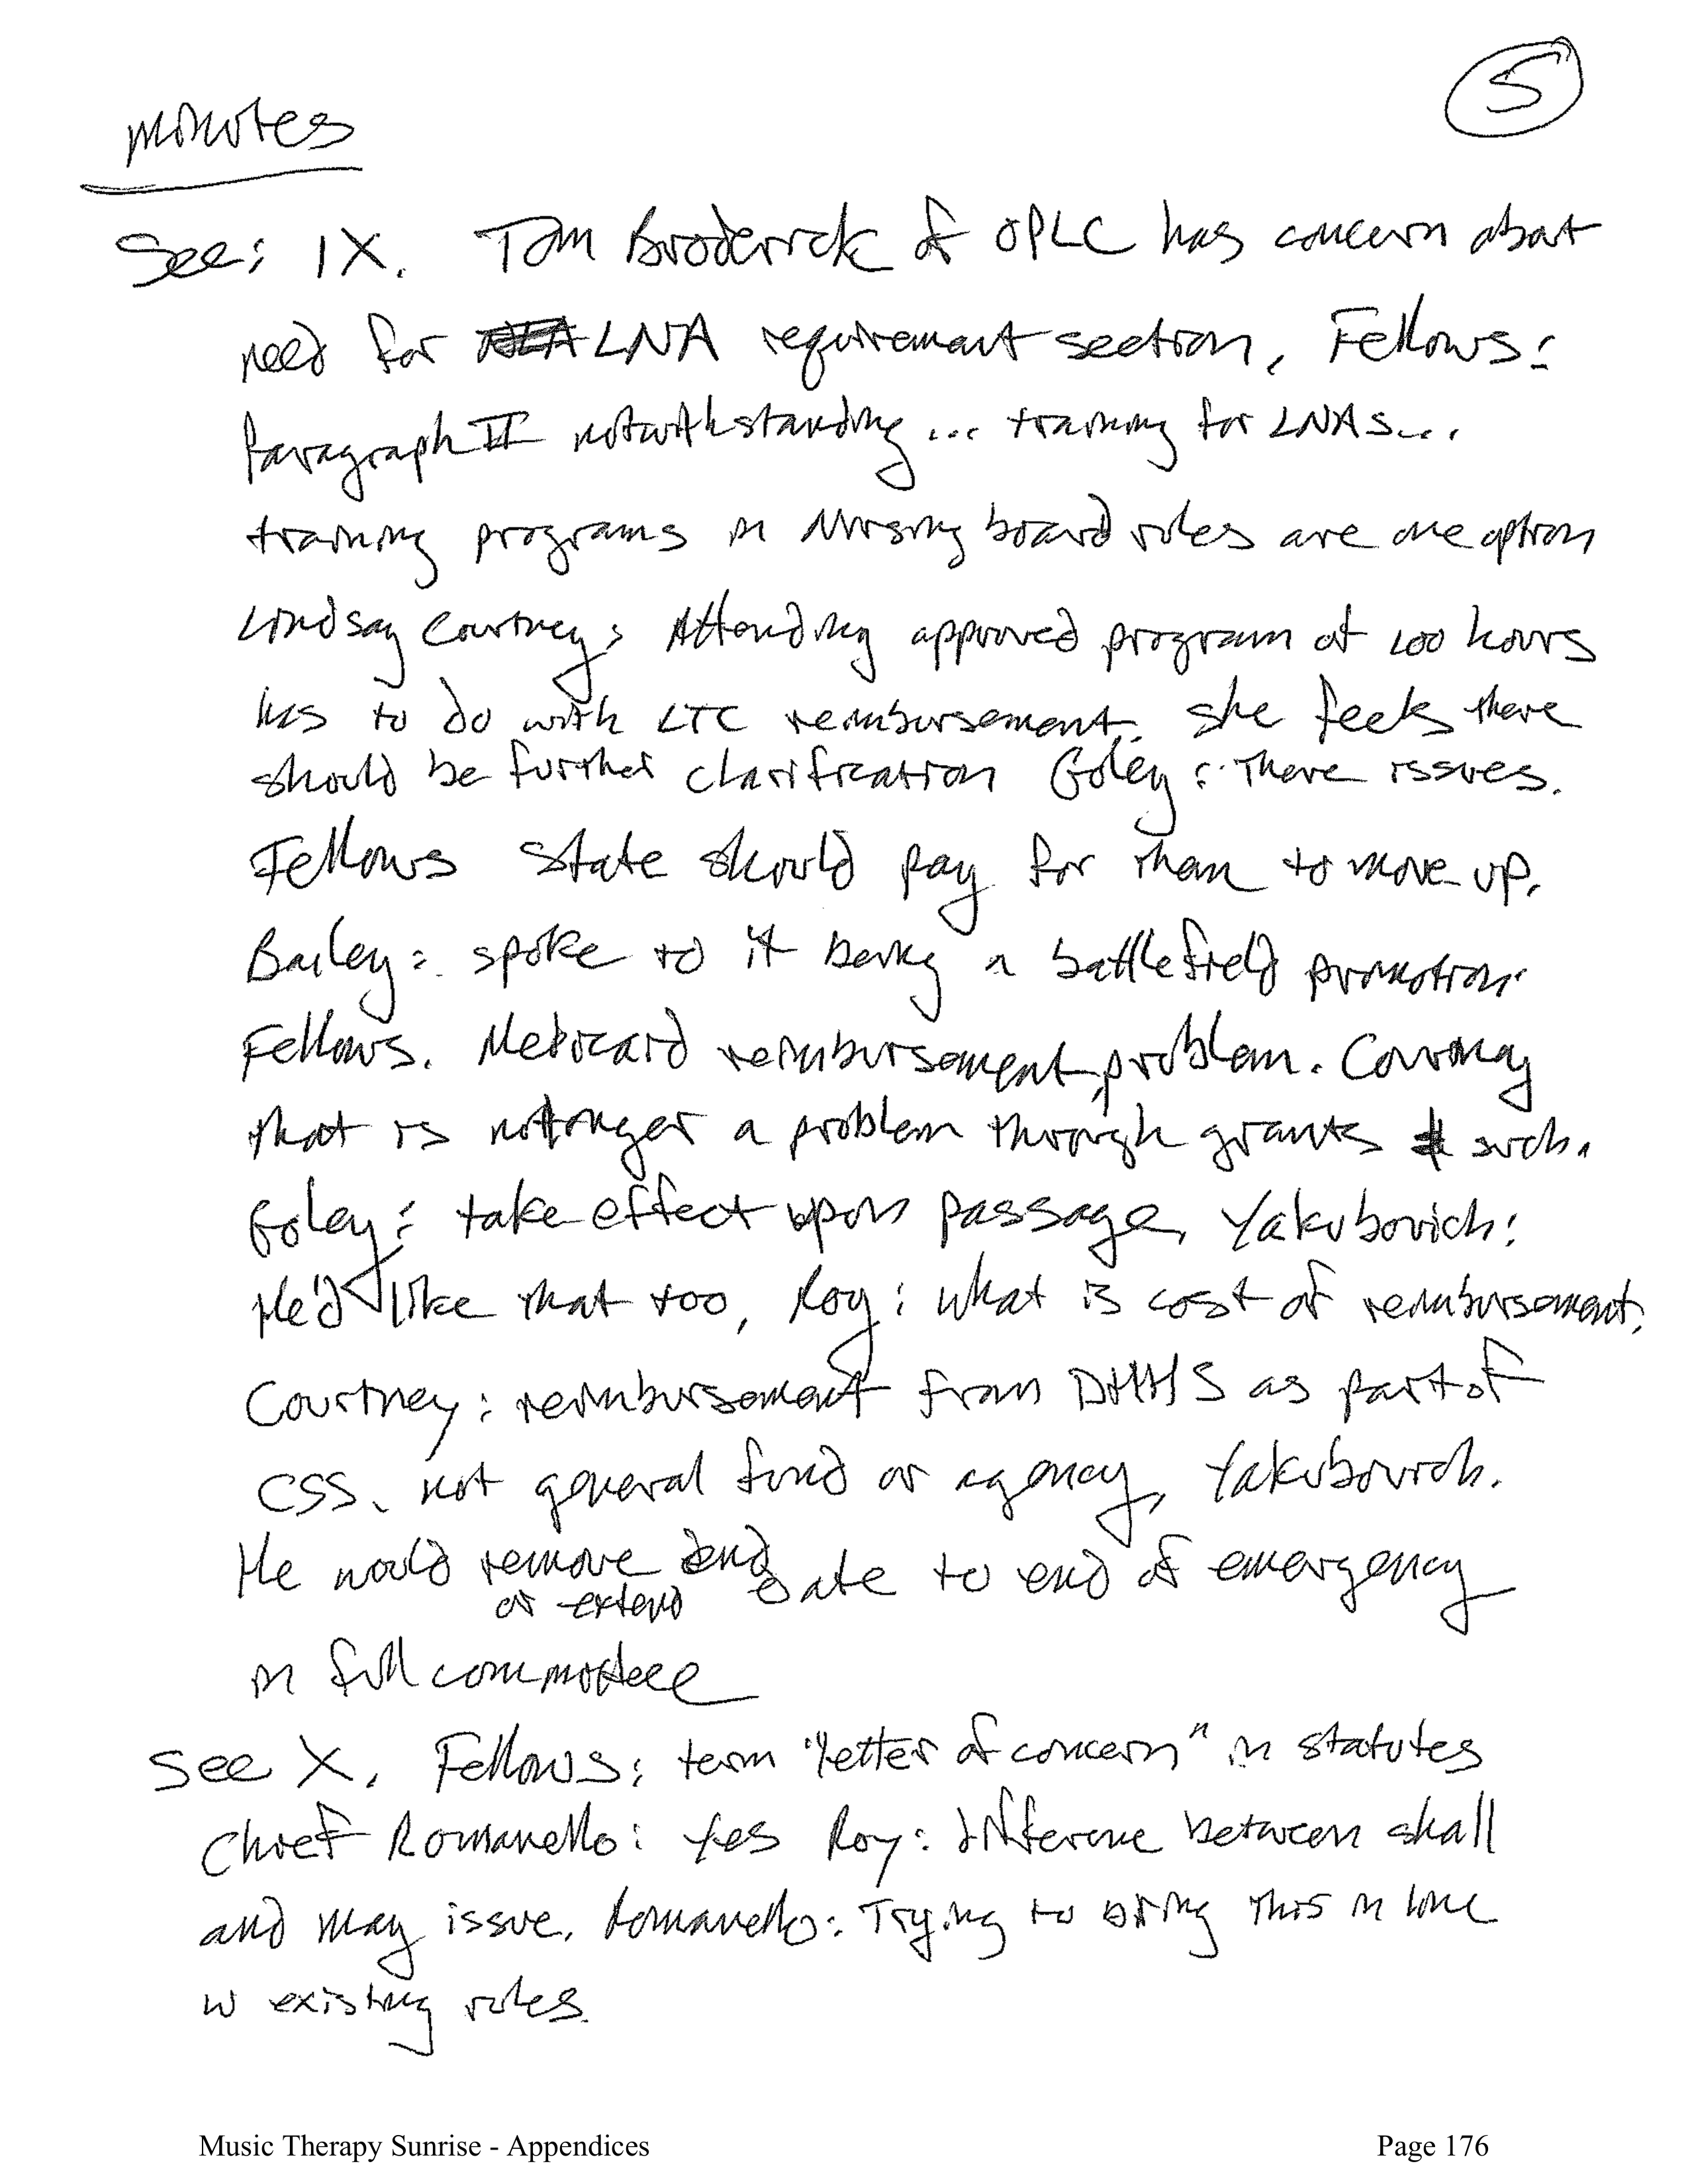 5
minutes
See: IX. Tom Broderick of OPLC has concern about
need for LNA requirement section, Fellows:
Paragraph II notwithstanding ... training for LNAs...
training programs in Nursing board rules are one option
Lindsay Courtney: Attending approved program of 100 hours
has to do with LTC reimbursement. She feels there
should be further clarification Goley: There issues.
Fellows State should pay for them to move up.
Bailey: spoke to it being a battlefield promotion
Fellows. Medicaid reimbursement problem. Courtney
that is no longer a problem through grants & such.
Goley: take effect upon passage, Yakubovich:
He'd like that too, Roy: what is cost of reimbursement.
Courtney: reimbursement from DHHS as part of
CSS, not general fund or agency, Yakubovich.
He would remove end date to end of emergency
or extend
in full committee
See X. Fellows: term "letter of concern" in statutes
Chief Romanello: Yes Roy: difference between shall
and may issue. Romanello: Trying to bring this in line
w existing rules.
Music Therapy Sunrise - Appendices Page 176